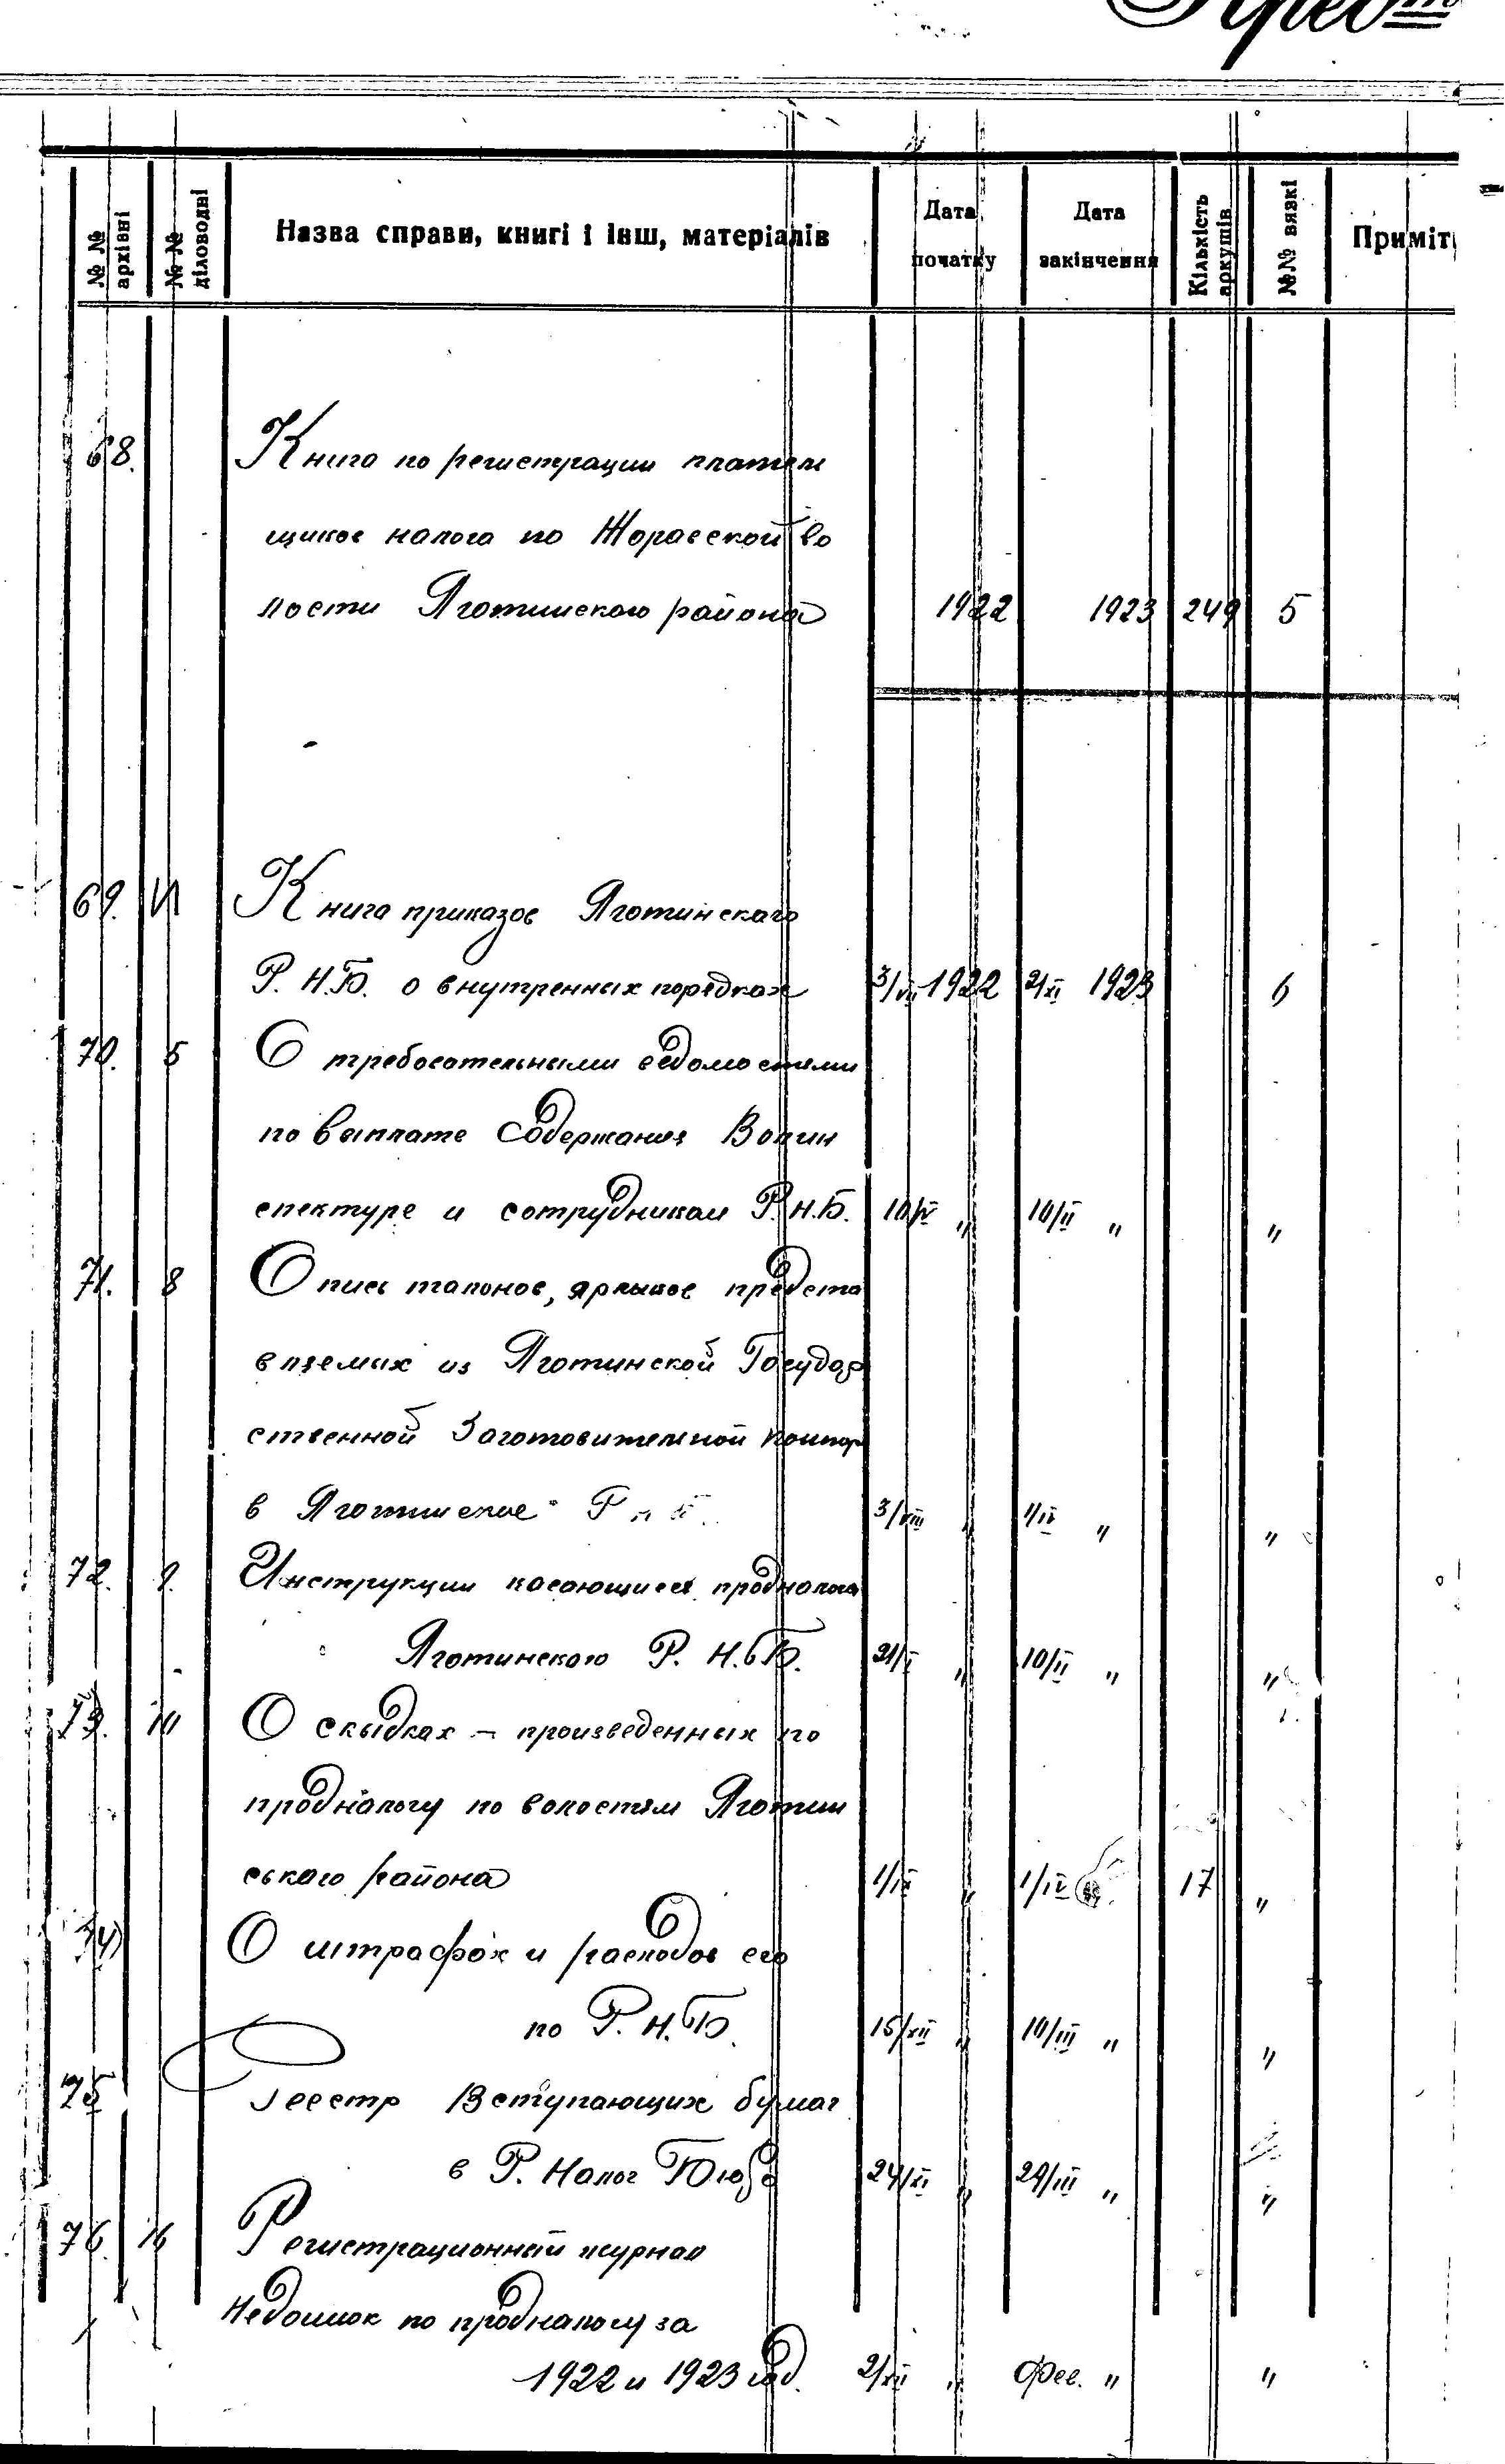 № № архівні
№ № діловодні
Назва справи, книгі і інш, матеріалів
Дата початку
Дата закінчення
Кількість аркушів
№№ вязкі
Приміт
68. Книга по регистрации плательщиков
щиков налога по Жоравской во
лости Яготинского района 1922 1923 249 5
69. Книга приказов Яготинскаго
Р. Н. Б. о внутренных порядках 3/VII 1922 2/XI 1923 6
70. 5 С требовательными ведомостями
по выплате содержания Волин
спектуре и сотрудникам Р. Н. Б. 10/V " 10/II " "
71. 8 Опись талонов, ярлыков предста
вляемых из Яготинской Государ
ственной Заготовительной контор
в Яготинское Р Н Б 3/VIII " 1/IV " "
72. 9. Инструкции касающиеся продналога
Яготинского Р. Н. Б. 21/V " 10/II " "
73. О скидках - произведенных по
продналогу по волостям Яготин
ського района 1/IX " 1/IV 17 "
74 О штрафах и расходов его
по Р. Н. Б. 15/XII " 10/III " "
75 Реестр Вступающих бумаг
в Р. Налог Бюро 24/XI " 29/III " "
76. 16 Регистрационный журнал
Недоимок по продналогу за
1922 и 1923 год. 2/XII " Фев. " "